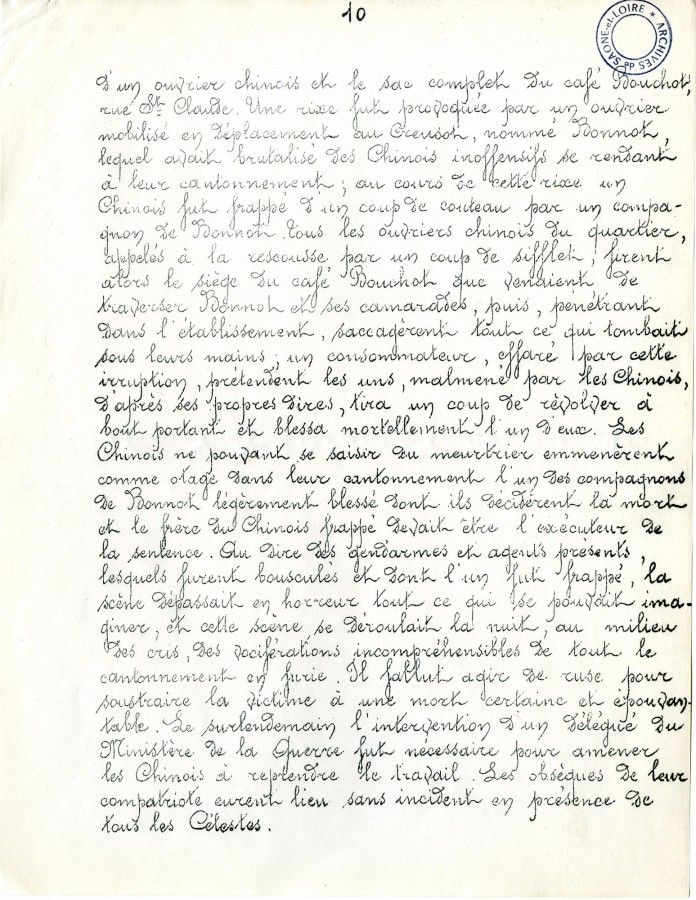 10
SAONE-et-LOIRE * ARCHIVES DEP
d'un ouvrier chinois et le sac complet du café Bouchot,
rue St Claude. Une rixe fut provoquée par un ouvrier
mobilisé en déplacement au Creusot, nommé Bonnot,
lequel avait brutalisé des Chinois inoffensifs se rendant
à leur cantonnement ; au cours de cette rixe un
Chinois fut frappé d'un coup de couteau par un compa-
gnon de Bonnot. Tous les ouvriers chinois du quartier,
appelés à la rescousse par un coup de sifflet, firent
alors le siège du café Bouchot que venaient de
traverser Bonnot et ses camarades, puis, penétrant
dans l'établissement, saccagèrent tout ce qui tombait
sous leurs mains ; un consommateur, effaré par cette
irruption, prétendent les uns, malmené par les Chinois,
d'après ses propres dires, tira un coup de révolver à
bout portant et blessa mortellement l'un d'eux. Les
Chinois ne pouvant se saisir du meurtrier emmenèrent
comme otage dans leur cantonnement l'un des compagnons
de Bonnot légèrement blessé dont ils décidèrent la mort
et le frère du Chinois frappé devait être l'exécuteur de
la sentence. Au dire des gendarmes et agents présents,
lesquels furent bousculés et dont l'un fut frappé, la
scène dépassait en horreur tout ce qui se pouvait ima-
giner, et cette scène se déroulait la nuit, au milieu
des cris, des vociférations incompréhensibles de tout le
cantonnement en furie. Il fallut agir de ruse pour
soustraire la victime à une mort certaine et épouvan-
table. Le surlendemain l'intervention d'un délégué du
Ministère de la Guerre fut nécessaire pour amener
les Chinois à reprendre le travail. Les obsèques de leur
compatriote eurent lieu sans incident en présence de
tous les Célestes.